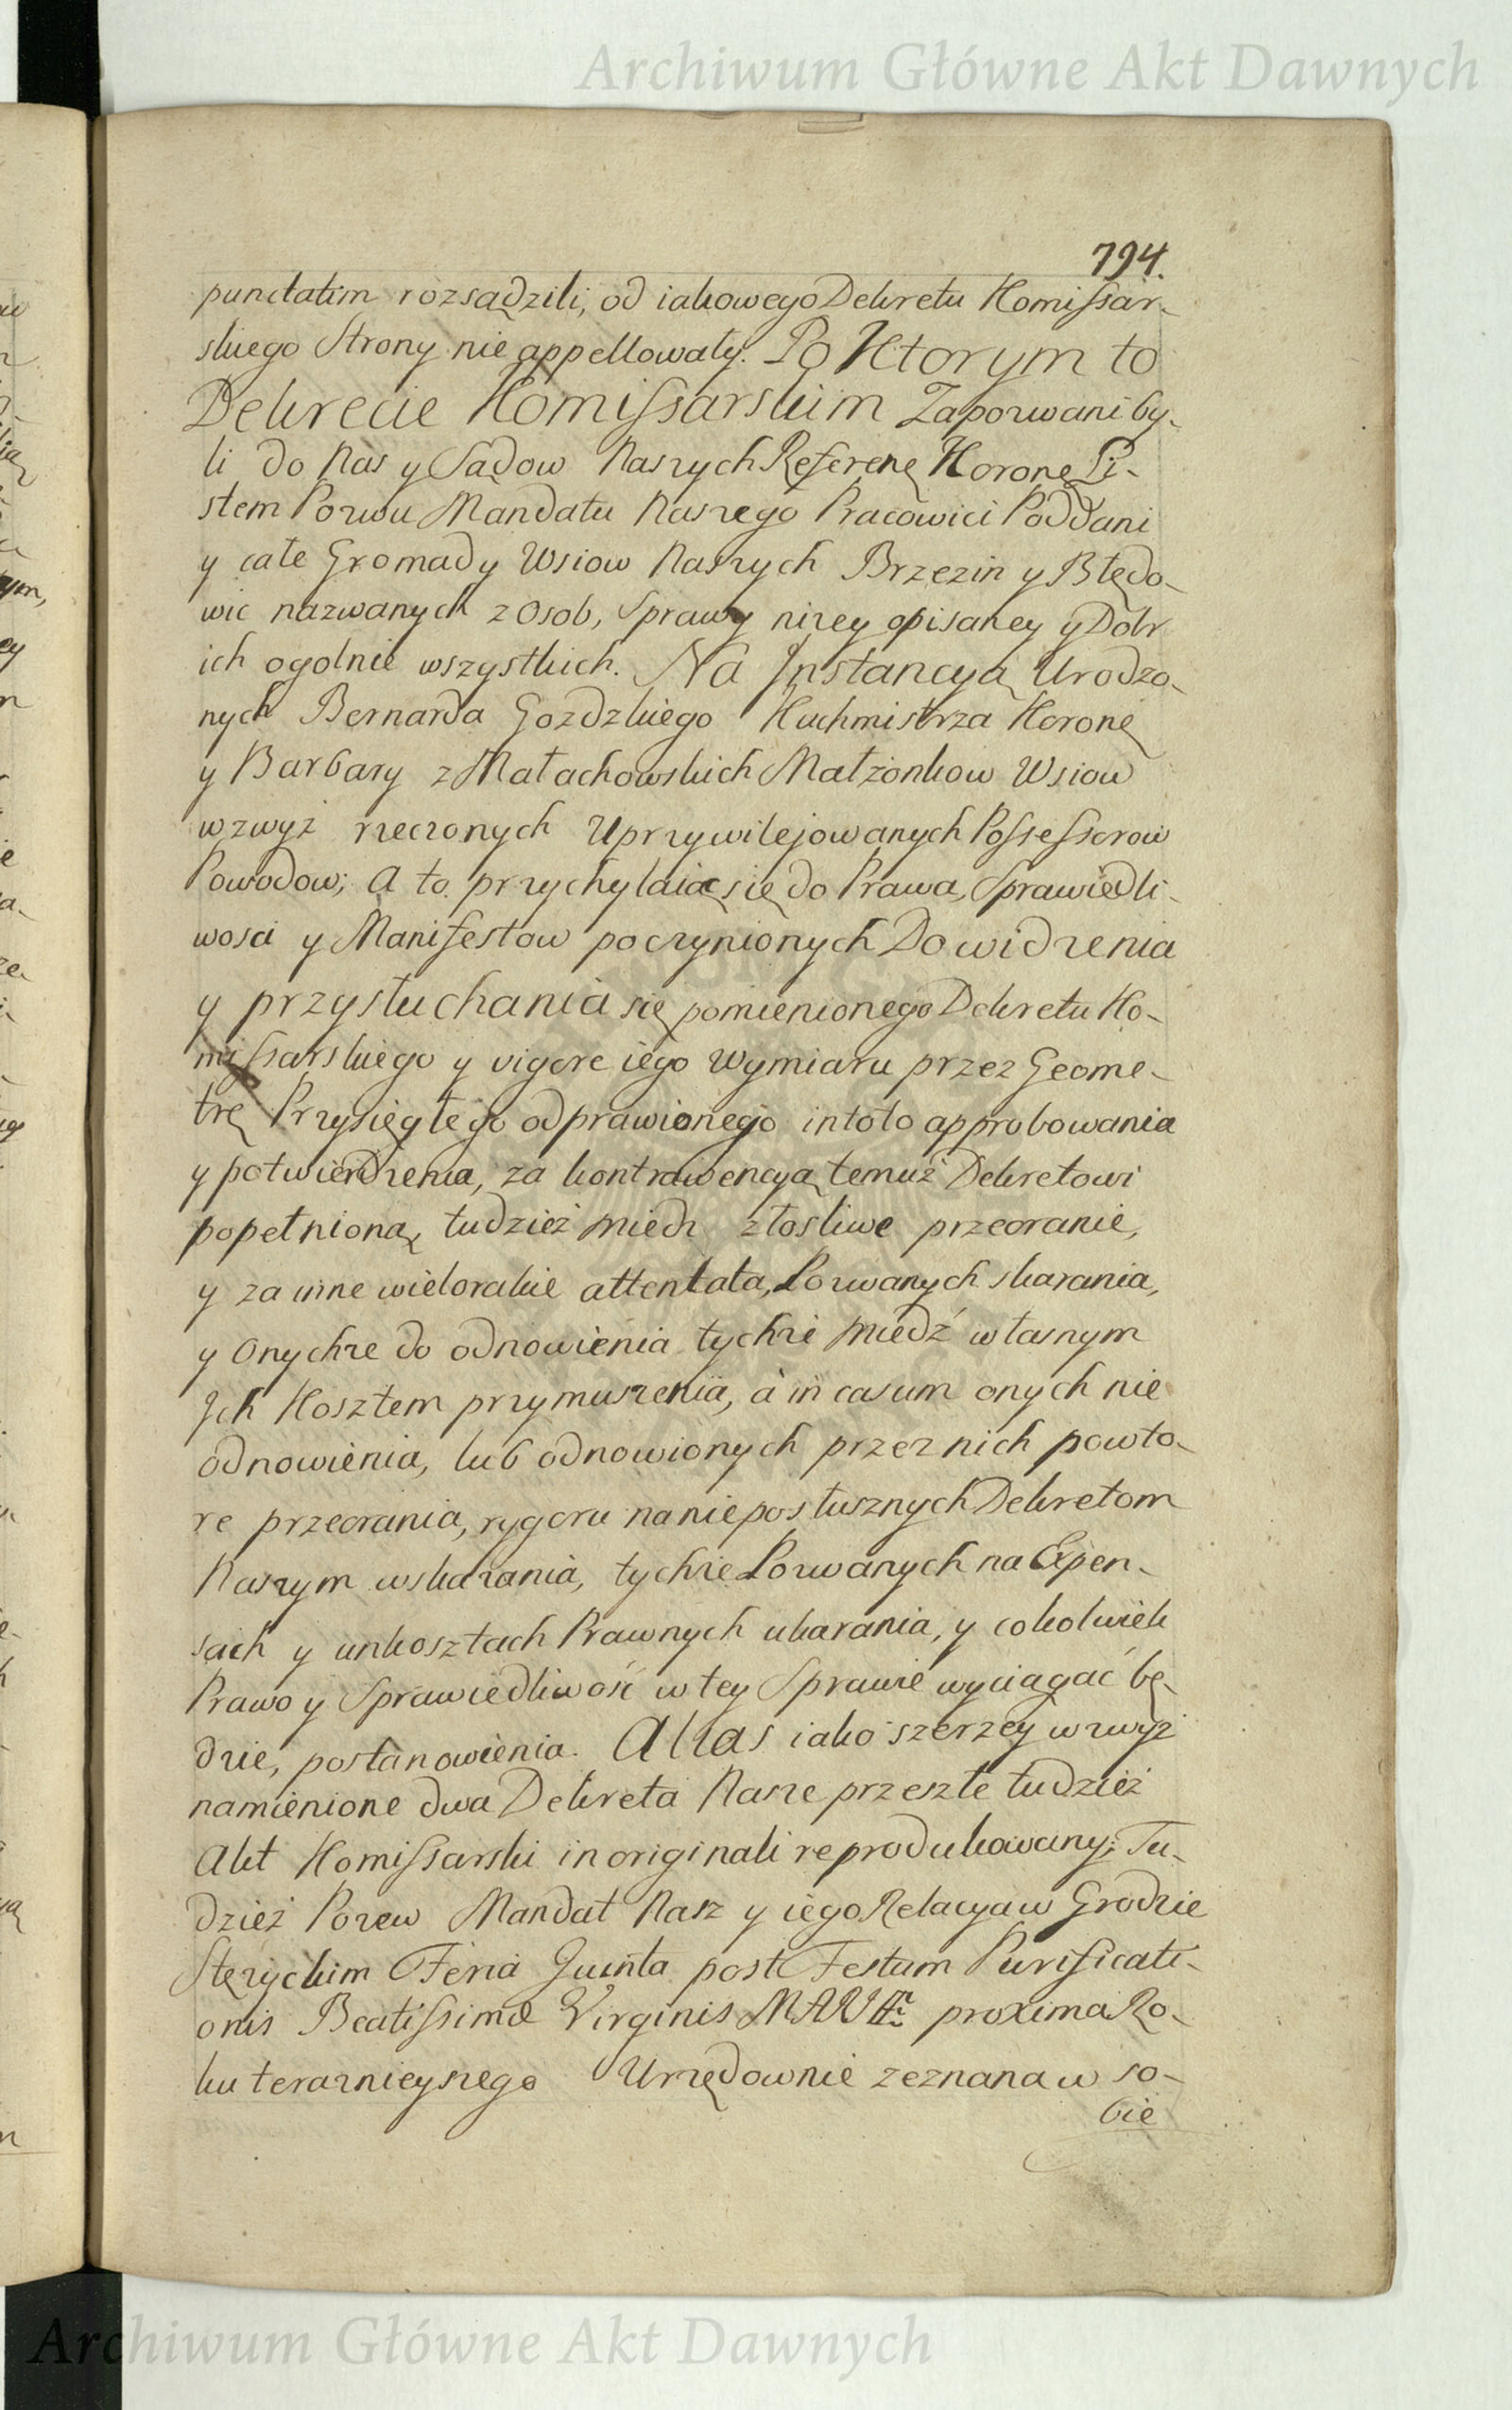 Archiwum Główne Akt Dawnych
794.
punctatim rozsądzili, od iakowego Dekretu Komissar-
skiego Strony nie appellowały. Po Ktorym to
Dekrecie Komissarskim Zapozwani by-
li do Nas y Sądow Naszych Referenę Koronę Li-
stem Pozwu Mandatu Naszego Pracowici Poddani
y całe Gromady Wsiow Naszych Brzezin y Błędo-
wic nazwanych z Osob, Sprawy niżey opisaney y Dobr
ich ogolnie wszystkich. Na Instancyą Urodzo-
nych Bernarda Gozdzkiego Kuchmistrza Koronę
y Barbary z Małachowskich Małżonkow Wsiow
wzwyż rzeczonych Uprzywilejowanych Possessorow
Powodow; A to przychylaiąc się do Prawa, Sprawiedli-
wosci y Manifestow poczynionych Do widzenia
y przysłuchania się pomienionego Dekretu Ko-
missarskiego y vigore iego Wymiaru przez Geome-
trę Przysięgłego odprawionego in toto approbowania
y potwierdzenia, za kontrawencyą temuż Dekretowi
popełnioną, tudzież miedz złosliwe przeoranie,
y za inne wielorakie attentata, Pozwanych skarania,
y Onychże do odnowienia tychże miedź własnym
Ich Kosztem przymuszenia, a in casum onych nie
odnowienia, lub odnowionych przez nich powto-
re przeorania, rygoru na nieposłusznych Dekretom
Naszym wskazania, tychże Pozwanych na Expen-
sach y unkosztach Prawnych ukarania, y cokolwiek
Prawo y Sprawiedliwość w tey Sprawie wyciągać bę-
dzie, postanowienia. Alias iako szerzey wzwyż
namienione dwa Dekreta Nasze przeszłe tudzież
Akt Komissarski in originali reprodukowany; Tu-
dzież Pozew Mandat Nasz y iego Relacya w Grodzie
Stężyckim Feria Quinta post Festum Purificati-
onis Beatissimæ Virginis MARIÆ proxima Ro-
ku teraznieyszego Urzędownie zeznana w so-
bie
Archiwum Główne Akt Dawnych